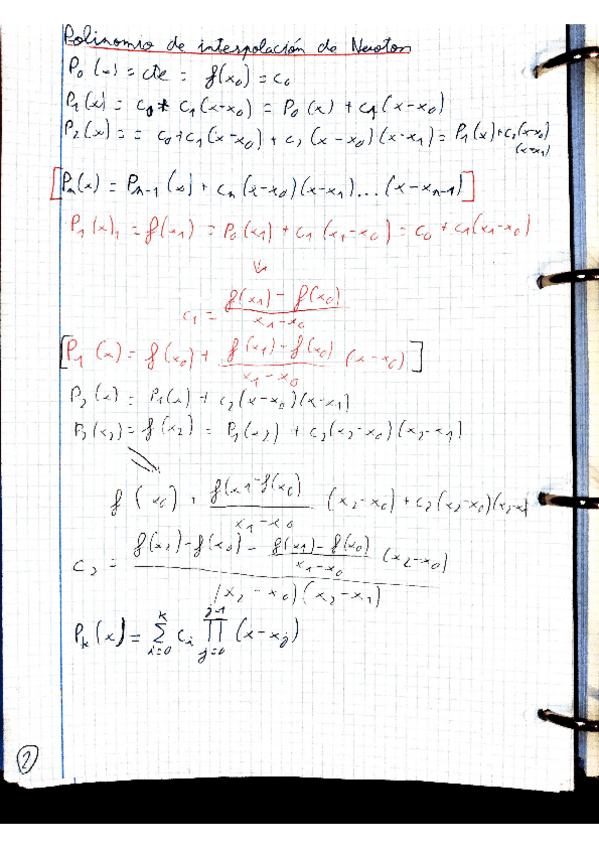 Polinomio de interpolación de Newton
P₀(x) = cte = f(x₀) = c₀
P₁(x) = c₀ * c₁(x-x₀) = P₀(x) + c₁(x-x₀)
P₂(x) = = c₀+c₁(x-x₀) + c₂(x-x₀)(x-x₁) = P₁(x)+c₂(x-x₀)
(x-x₁)
[Pₙ(x) = Pₙ₋₁(x) + cₙ(x-x₀)(x-x₁)...(x-xₙ₋₁)]
P₁(x)₁ = f(x₁) = P₀(x₁) + c₁(x₁-x₀) = c₀ + c₁(x₁-x₀)
⇓
c₁ = \frac{f(x₁) - f(x₀)}{x₁-x₀}
[P₁(x) = f(x₀) + \frac{f(x₁)-f(x₀)}{x₁-x₀} (x-x₀)]
P₂(x) = P₁(x) + c₂(x-x₀)(x-x₁)
P₂(x₂) = f(x₂) = P₁(x₂) + c₂(x₂-x₀)(x₂-x₁)
f(x₀) + \frac{f(x₁-f(x₀)}{x₁-x₀} (x₂-x₀) + c₂(x₂-x₀)(x₂-x₁
c₂ = \frac{f(x₂)-f(x₀) - \frac{f(x₁)-f(x₀)}{x₁-x₀} (x₂-x₀)}{(x₂-x₀)(x₂-x₁)}
Pₖ(x) = \sum_{i=0}^{k} c_i \prod_{j=0}^{j-1} (x-x_j)
2